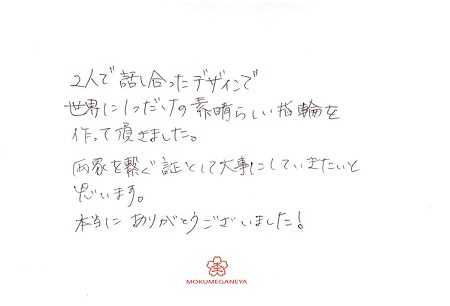 2人で話し合ったデザインで
世界に1つだけの素晴らしい指輪を
作って頂きました。
両家を繋ぐ証として大事にしていきたいと
思います。
本当にありがとうございました!
MOKUMEGANEYA